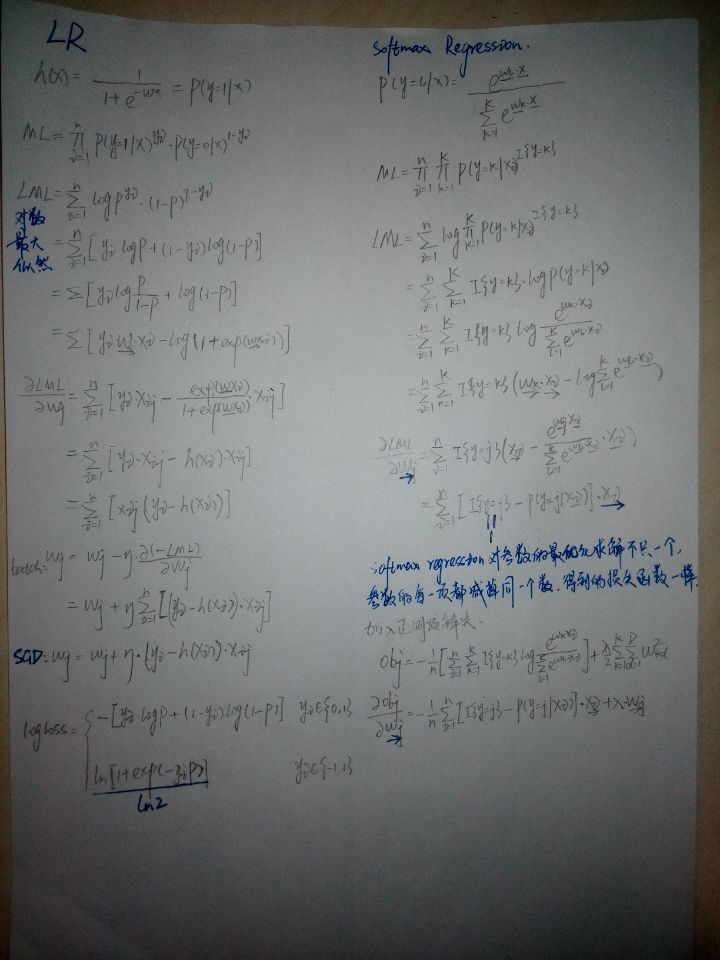 LR
h(x) = 1 / (1 + e^{-wx}) = P(y=1|x)
ML = ∏_{i=1}^{n} P(y=1|x)^{y_i} · P(y=0|x)^{1-y_i}
LML = ∑_{i=1}^{n} log P^{y_i} · (1-P)^{1-y_i}
对数
最大
似然
= ∑_{i=1}^{n} [y_i·log P + (1-y_i) log(1-P)]
= ∑ [y_i log P/(1-P) + log(1-P)]
= ∑ [y_i w·x_i - log(1 + exp(w x_i))]
∂LML/∂w_j = ∑_{i=1}^{n} [y_i·x_{ij} - exp(w x_i)/(1+exp(w x_i)) · x_{ij}]
= ∑_{i=1}^{n} [y_i·x_{ij} - h(x_i)·x_{ij}]
= ∑_{i=1}^{n} [x_{ij}(y_i - h(x_i))]
batch: w_j = w_j - η·∂(-LML)/∂w_j
= w_j + η ∑_{i=1}^{n} [(y_i - h(x_i))·x_{ij}]
SGD: w_j = w_j + η·(y_i - h(x_i))·x_{ij}
log loss = { -[y_i·log P + (1-y_i) log(1-P)] y_i∈{0,1}
ln[1+exp(-y_i P)] / ln2 y_i∈{-1,1}
Softmax Regression.
P(y=i|x) = e^{w_i·x} / ∑_{k=1}^{K} e^{w_k·x}
ML = ∏_{i=1}^{n} ∏_{k=1}^{K} P(y=k|x_i)^{I{y=k}}
LML = ∑_{i=1}^{n} log ∏_{k=1}^{K} P(y=k|x_i)^{I{y=k}}
= ∑_{i=1}^{n} ∑_{k=1}^{K} I{y=k}·log P(y=k|x_i)
= ∑_{i=1}^{n} ∑_{k=1}^{K} I{y=k} log e^{w_k·x_i} / ∑_{l=1}^{K} e^{w_l·x_i}
= ∑_{i=1}^{n} ∑_{k=1}^{K} I{y=k} (w_k·x_i - log ∑_{l=1}^{K} e^{w_l·x_i})
∂LML/∂w_j = ∑_{i=1}^{n} I{y=j}(x_i - e^{w_j x_i} / ∑_{l=1}^{K} e^{w_l·x_i} · x_i)
= ∑_{i=1}^{n} [I{y=j} - P(y=j|x_i)]·x_i
softmax regression对参数的最优化求解不只一个,
参数的每一项都减掉同一个数,得到的损失函数一样.
加入正则项解决.
obj = -1/n [∑_{i=1}^{n} ∑_{k=1}^{K} I{y=k} log e^{w_k x_i} / ∑_{l=1}^{K} e^{w_l x_i}] + λ/2 ∑_{k=1}^{K} ∑_{d=1}^{D} w_{kd}^2
∂obj/∂w_j = -1/n ∑_{i=1}^{n} [I{y=j} - P(y=j|x_i)]·x_i + λ·w_j